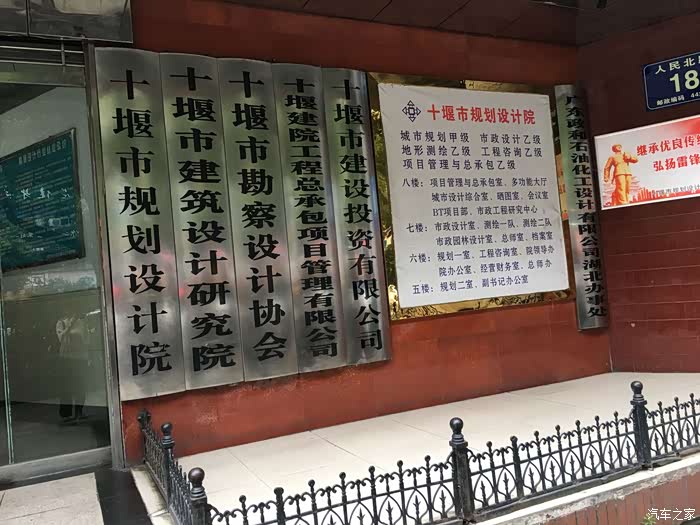 十堰市规划设计院
十堰市建筑设计研究院
十堰市勘察设计协会
十堰建院工程总承包项目管理有限公司
十堰市建设投资有限公司
十堰市规划设计院
城市规划甲级 市政设计乙级
地形测绘乙级 工程咨询乙级
项目管理与总承包乙级
八楼：项目管理与总承包室、多功能大厅
城市设计综合室、晒图室、会议室
BT项目部、市政工程研究中心
七楼：市政设计室、测绘一队、测绘二队
市政园林设计室、总师室、档案室
六楼：规划一室、工程咨询室、院领导办
院办公室、经营财务室、总师办
五楼：规划二室、副书记办公室
石油化工设计有限公司湖北办事处
人民北
18
邮政编码 44
继承优良传
弘扬雷锋
十堰市规划设计
汽车之家